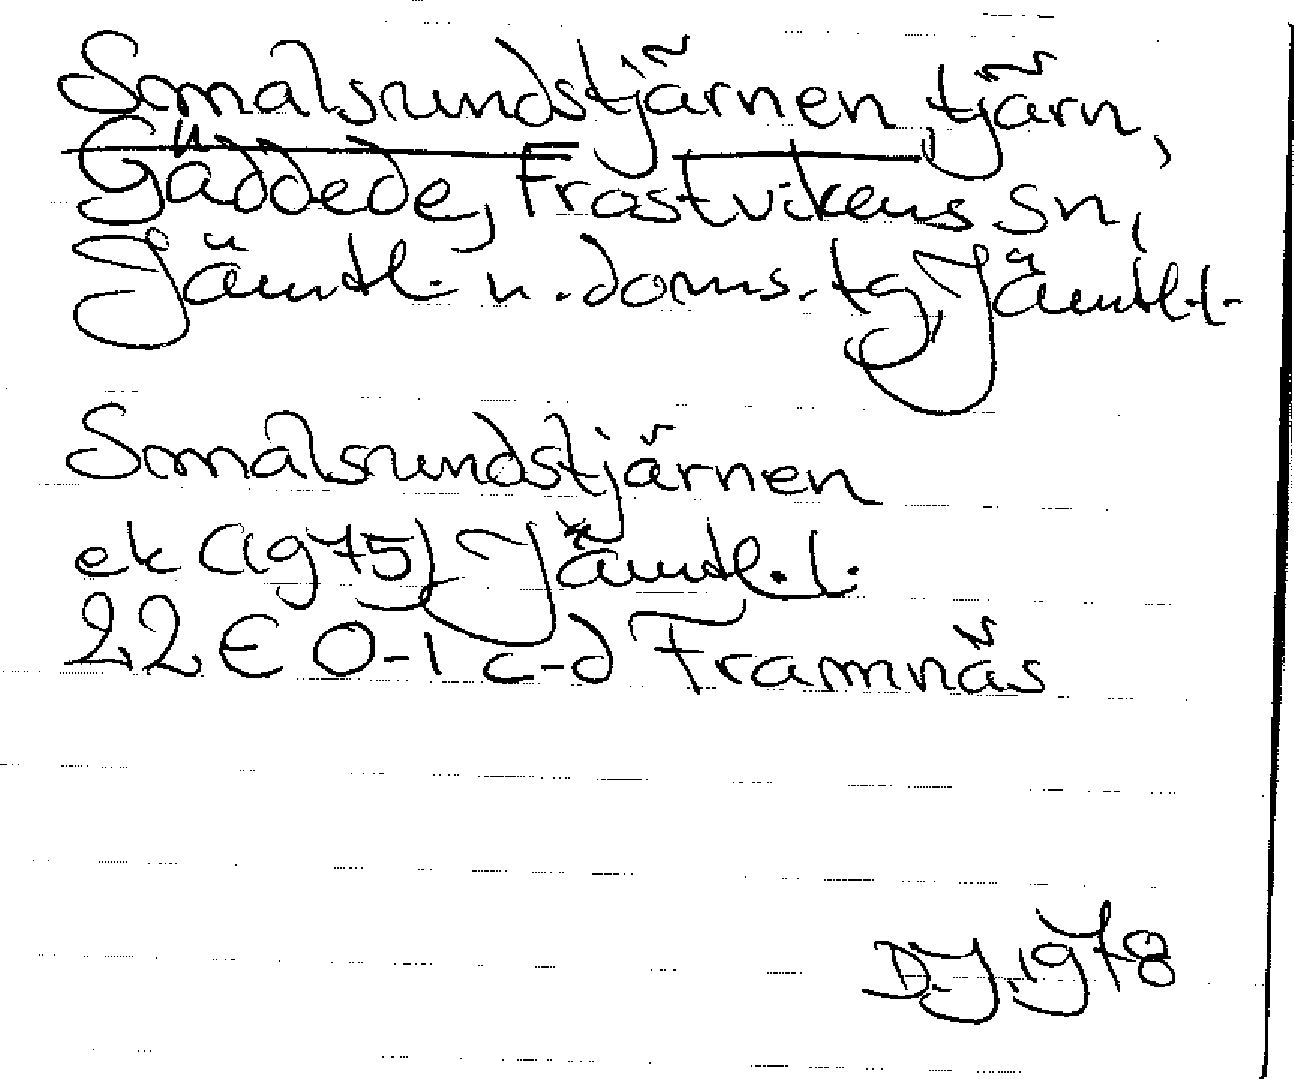 Smalsundstjärnen, tjärn,
Gäddede, Frostvikens sn,
Jämtl. n. doms. tg, Jämtl.l.
Smalsundstjärnen
ek (1975) Jämtl.l.
22E 0-1 c-d Framnäs
D.J. 1978